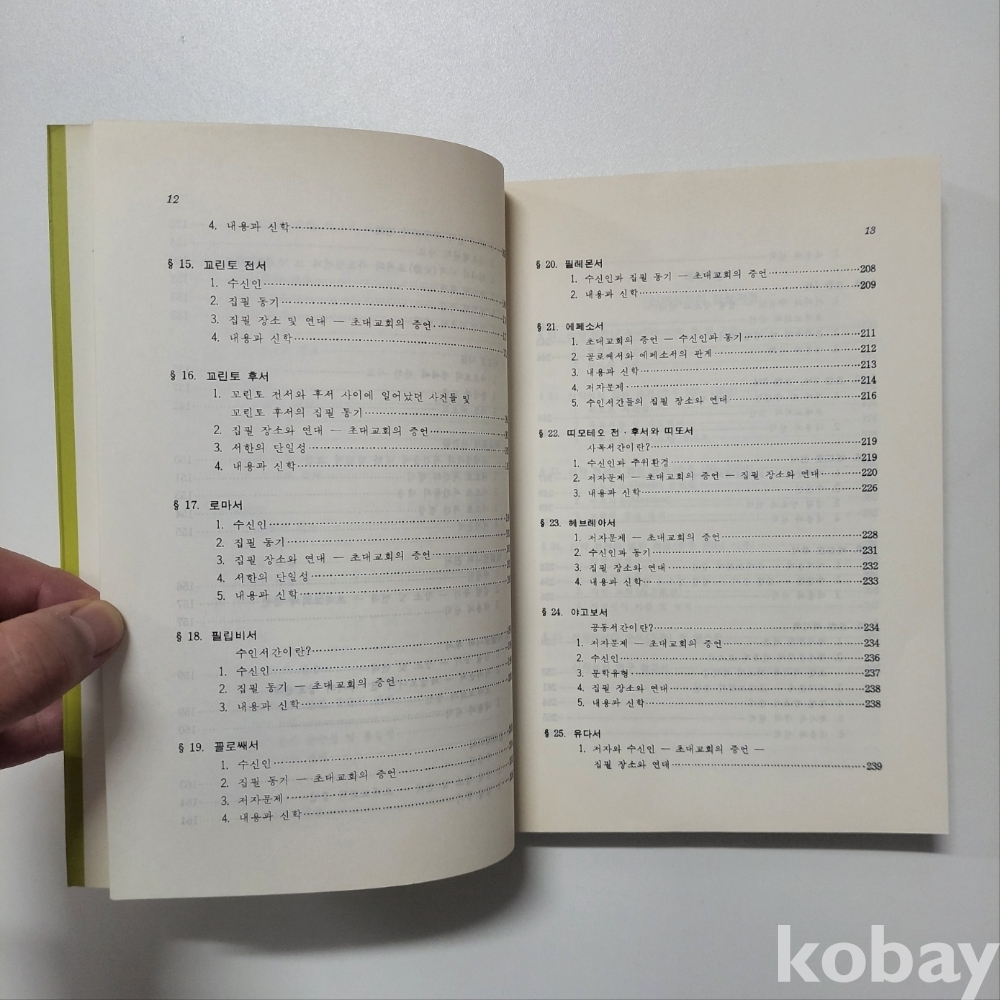 12
4. 내용과 신학
§ 15. 꼬린토 전서
1. 수신인
2. 집필 동기
3. 집필 장소 및 연대 — 초대교회의 증언
4. 내용과 신학
§ 16. 꼬린토 후서
1. 꼬린토 전서와 후서 사이에 일어났던 사건들 및
꼬린토 후서의 집필 동기
2. 집필 장소와 연대 — 초대교회의 증언
3. 서한의 단일성
4. 내용과 신학
§ 17. 로마서
1. 수신인
2. 집필 동기
3. 집필 장소와 연대 — 초대교회의 증언
4. 서한의 단일성
5. 내용과 신학
§ 18. 필립비서
수인서간이란?
1. 수신인
2. 집필 동기 — 초대교회의 증언
3. 내용과 신학
§ 19. 꼴로쌔서
1. 수신인
2. 집필 동기 — 초대교회의 증언
3. 저자문제
4. 내용과 신학
13
§ 20. 필레몬서
1. 수신인과 집필 동기 — 초대교회의 증언 208
2. 내용과 신학 209
§ 21. 에페소서
1. 초대교회의 증언 — 수신인과 동기 211
2. 꼴로쌔서와 에페소서의 관계 212
3. 내용과 신학 213
4. 저자문제 214
5. 수인서간들의 집필 장소와 연대 216
§ 22. 띠모테오 전·후서와 띠또서
사목서간이란? 219
1. 수신인과 주위환경 219
2. 저자문제 — 초대교회의 증언 — 집필 장소와 연대 220
3. 내용과 신학 226
§ 23. 헤브레아서
1. 저자문제 — 초대교회의 증언 228
2. 수신인과 동기 231
3. 집필 장소와 연대 232
4. 내용과 신학 233
§ 24. 야고보서
공동서간이란? 234
1. 저자문제 — 초대교회의 증언 234
2. 수신인 236
3. 문학유형 237
4. 집필 장소와 연대 238
5. 내용과 신학 238
§ 25. 유다서
1. 저자와 수신인 — 초대교회의 증언 —
집필 장소와 연대 239
kobay